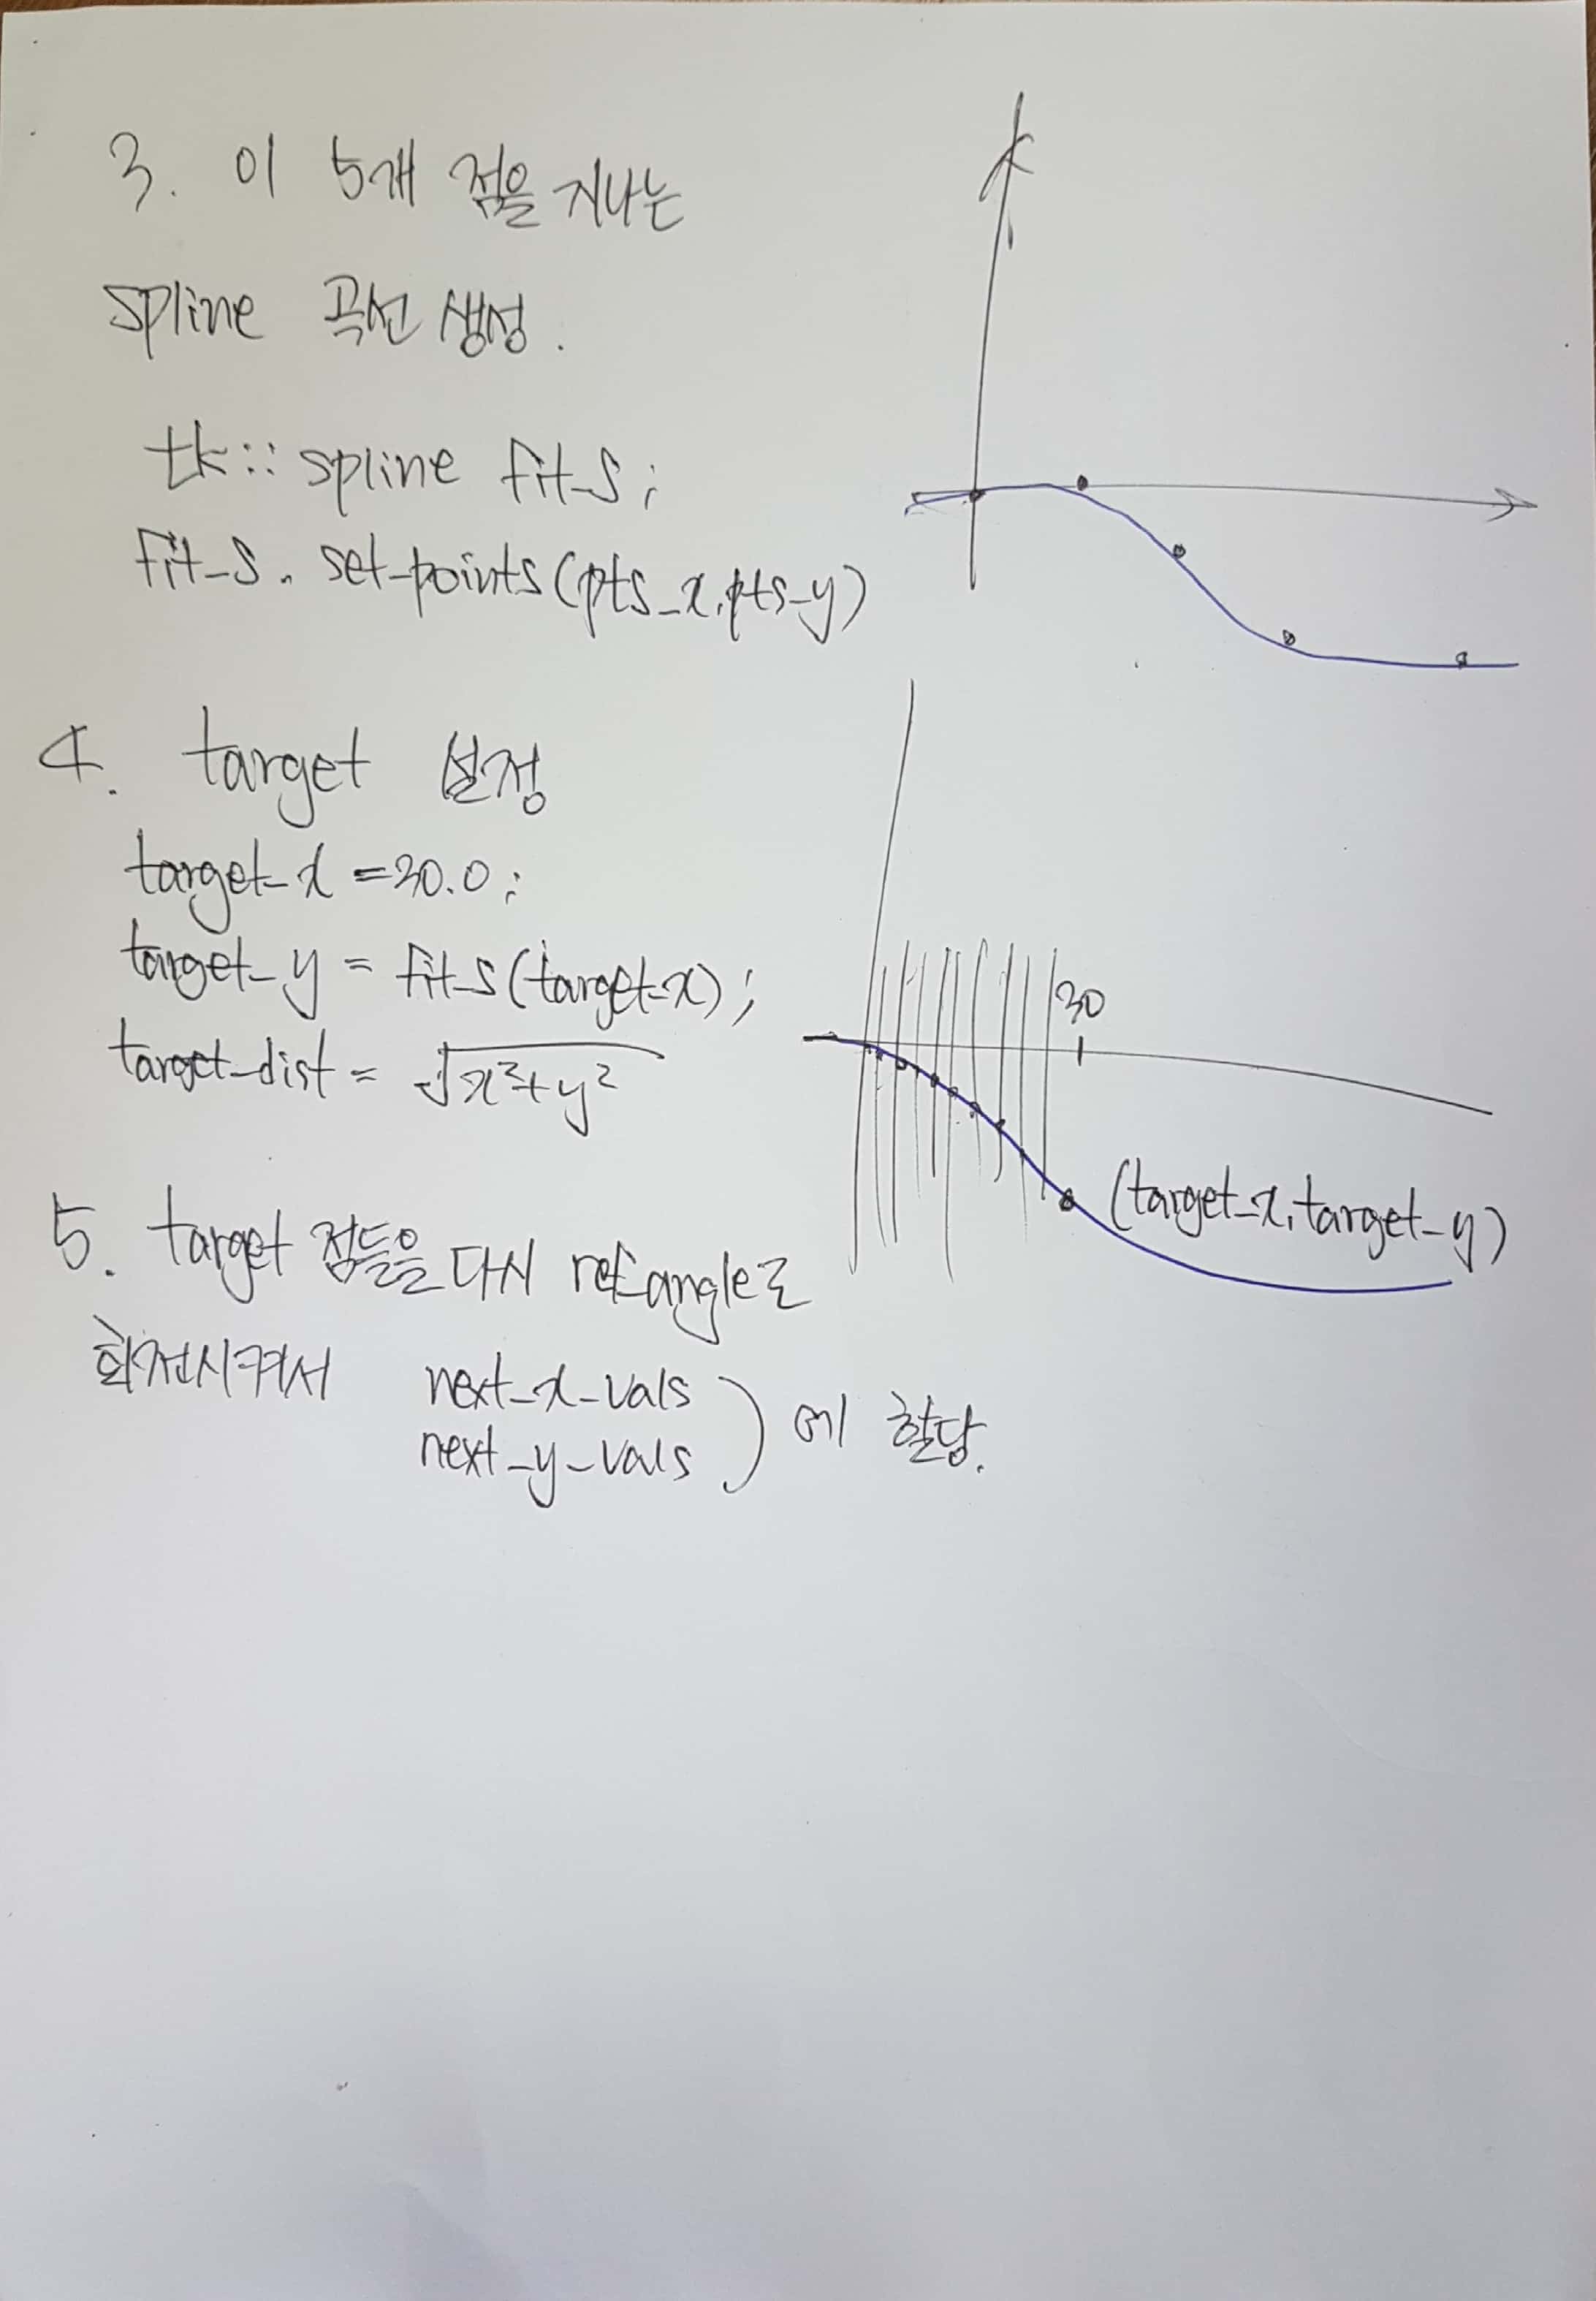 3. 이 5개 점을 지나는
spline 곡선 생성.
tk::spline fit_s;
fit_s.set_points(pts_x, pts_y)
4. target 설정
target_x = 30.0;
target_y = fit_s(target_x);
target_dist = √x²+y²
30
(target_x, target_y)
5. target 점들을 다시 ref_angle로
회전시켜서 next_x_vals
next_y_vals ) 에 할당.